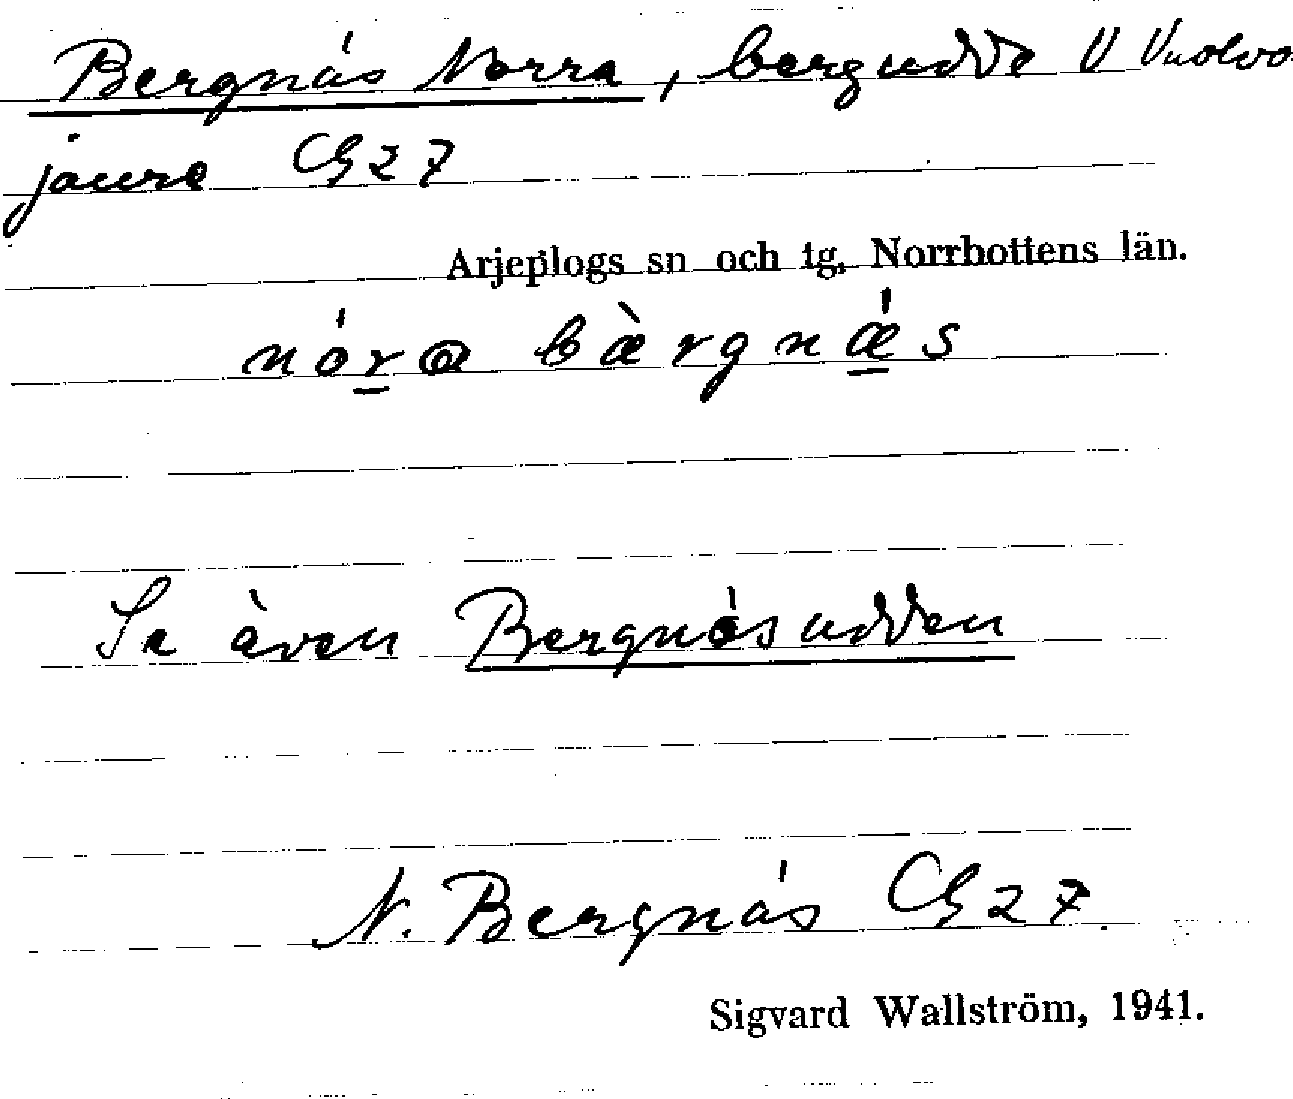 Bergnäs Norra, bergudde V Vuolvo-
jaure Gb 27
Arjeplogs sn och tg, Norrbottens län.
nóra bæ̀rgnǽs
Se även Bergnäsudden
N. Bergnäs Gb 27
Sigvard Wallström, 1941.